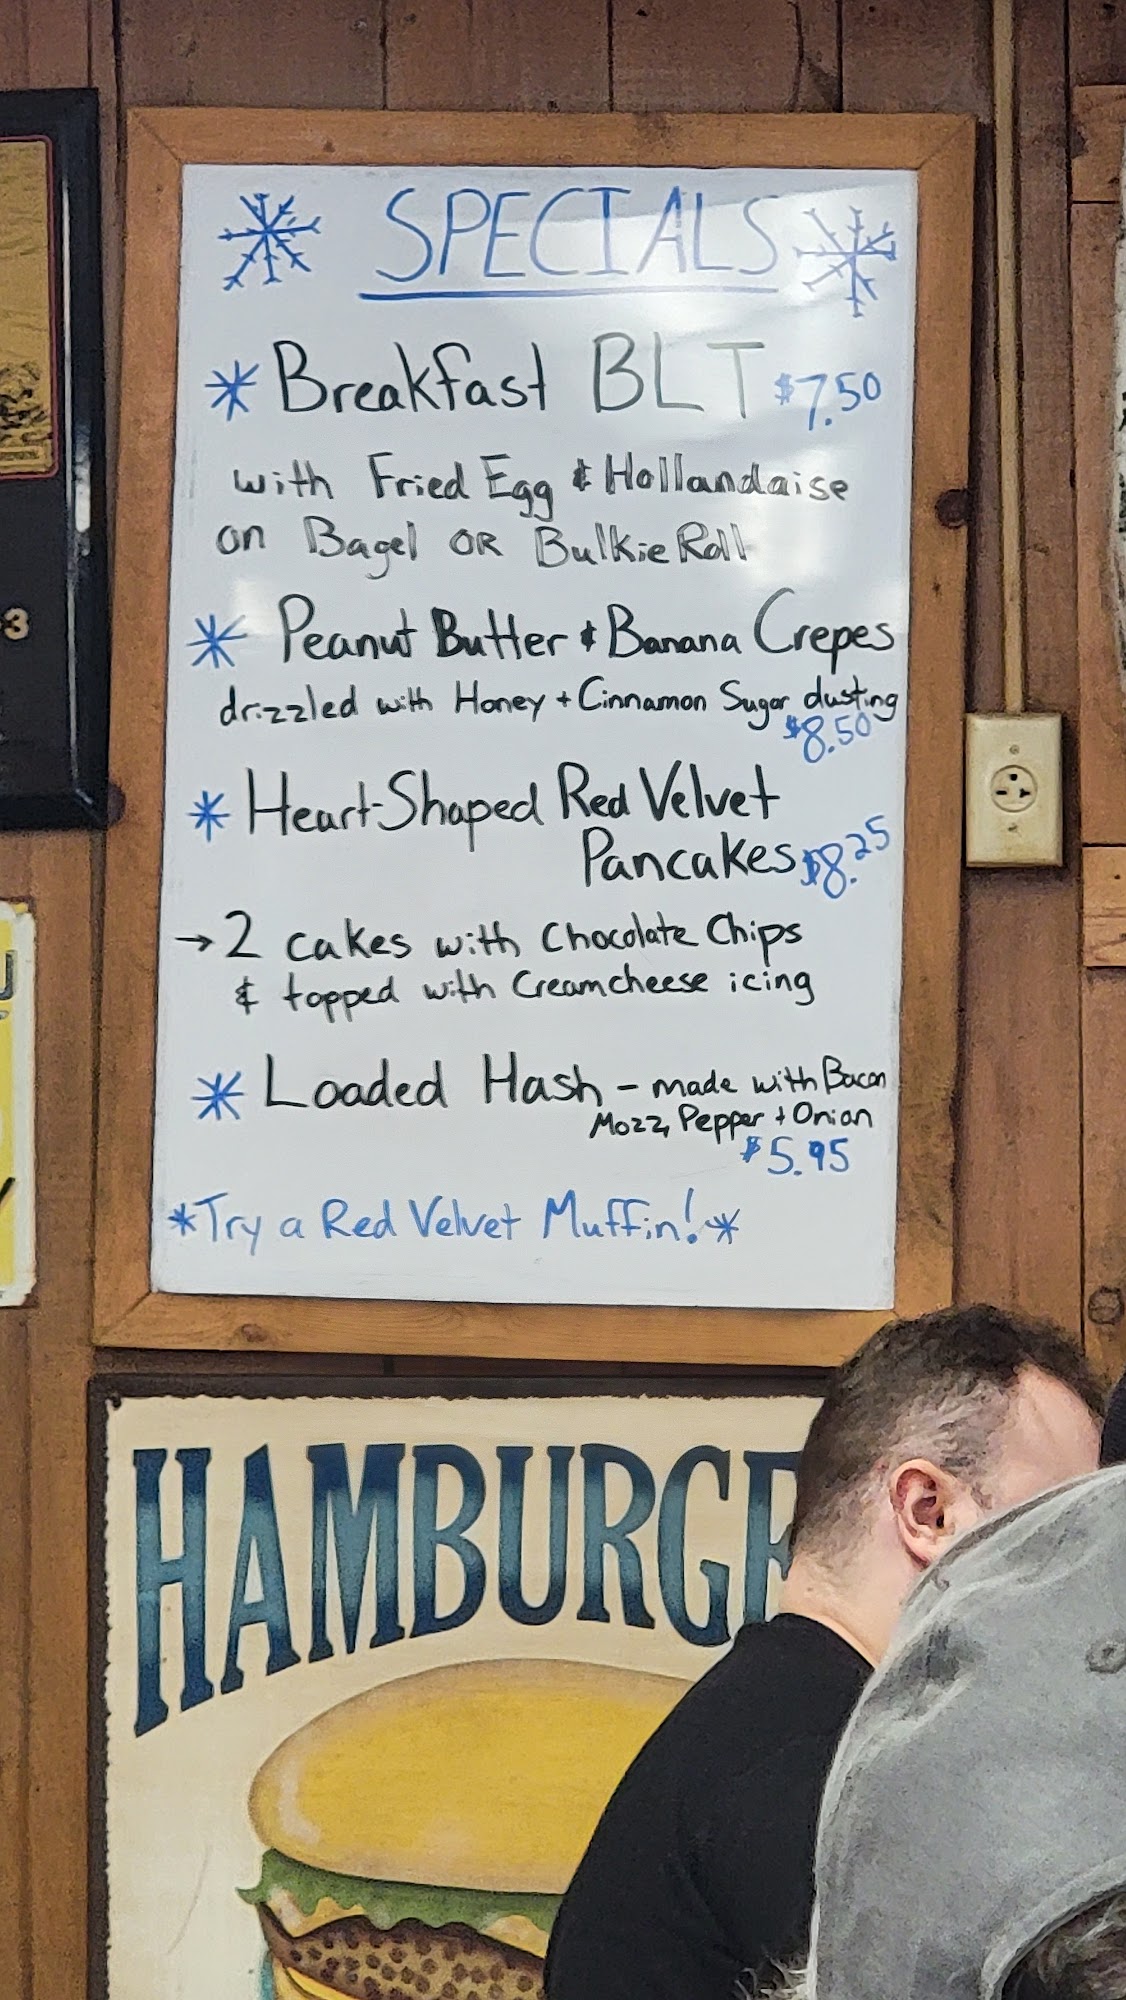 SPECIALS
Breakfast BLT $7.50
with Fried Egg & Hollandaise
on Bagel OR Bulkie Roll
Peanut Butter & Banana Crepes
drizzled with Honey + Cinnamon Sugar dusting
$8.50
Heart-Shaped Red Velvet
Pancakes $8.25
→ 2 cakes with Chocolate Chips
& topped with Creamcheese icing
Loaded Hash – made with Bacon
Mozz, Pepper + Onion
$5.95
*Try a Red Velvet Muffin!*
HAMBURGE
3